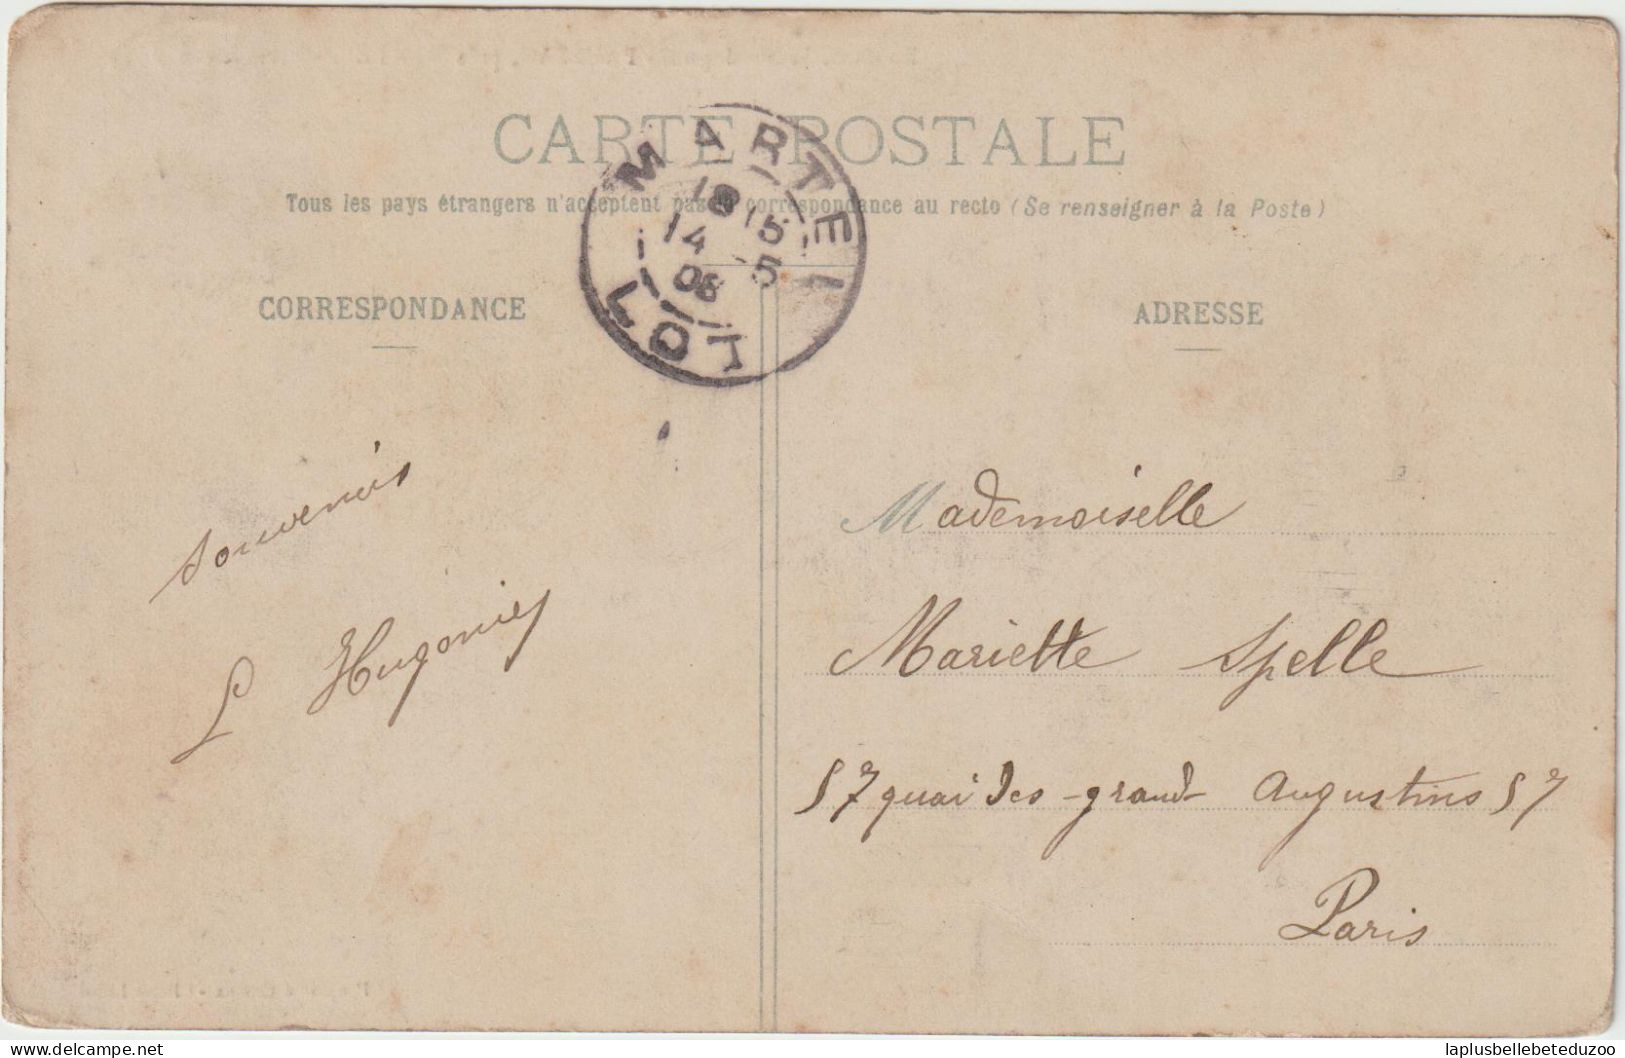 CARTE POSTALE
Tous les pays étrangers n'acceptent pas la correspondance au recto (Se renseigner à la Poste)
MARTEL
18 15
14 -5
06
LOT
CORRESPONDANCE
ADRESSE
Souvenirs
L Hugonie
Mademoiselle
Mariette Spelle
57 quai des grand Augustins 57
Paris
delcampe.net
laplusbellebeteduzoo